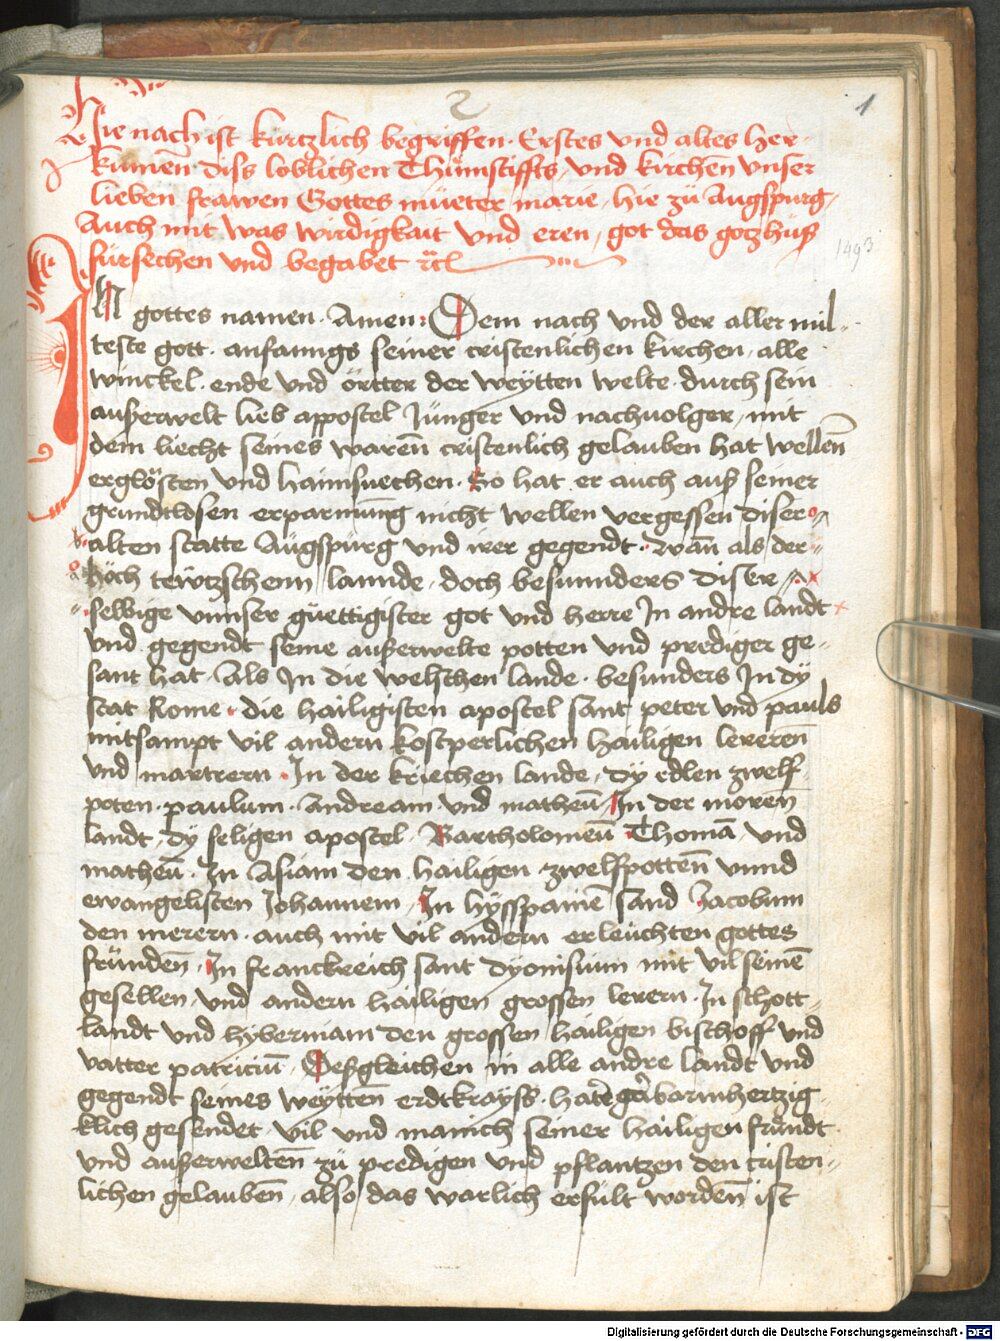 2
1
Hie nach ist kürtzlich begriffen. Erstes vnd altes her-
kumen diss loblichen Thumstiffts, vnd kirchen vnser
lieben frawen Gottes müeter marie, hie zü Augspurg,
Auch mit was wirdigkait vnd eren, got das gotzhüs
fürsechen vnd begabet
1493
IN gottes namen. Amen: Dem nach vnd der aller mil-
teste gott. anfanngs seiner cristenlichen kirchen, alle
winckel. ende vnd örtter der weytten welte. durch sein
außerwelt lieb appostel Jünger vnd nachuolger, mit
dem liecht seines waren̄ cristenlich gelauben hat wellen̄
erglösten vnd haimsuechen. So hat er auch auß seiner
grundtlosen erparmūng nicht wellen vergessen diser
alten statte Augspurg vnd irer gegendt. wan̄ als der
höch tewtzschenn lannde, doch besunnders diser
selbige vnnser güettigister got vnd herre In andre landt
vnd gegendt seine außerwelte potten vnd prediger ge-
sant hat. Als In die welschen lande. besunders In dy
stat Rome. die hailigisten apostel sant peter vnd pauls
mitsampt vil andern kostperlichen hailigen lereren̄
vnd martrern. In der kriechen lande, dy edlen zwelf-
poten. paulum. Andream vnd matheū, In der moren̄
landt, dy seligen apostel. Bartholomeū Thomā vnd
matheū. In Asiam den hailigen zwelfpotten̄ vnnd
ewangelisten Johannem, In hysspaniē sand Jacobum
den merern. auch mit vil andern erleuchten gottes
fründen̄. In franckreich sant dyonisium mit vil seinē
gesellen, vnd andern hailigen grossen lerern. In schott-
landt vnd hyberniam den grossen hailigen bischoff vnd
vatter patriciū. Desgleichen in alle andre landt vnd
gegendt seines weytten̄ erdtkrayss. hat er gar barmhertzig-
klich gesendet vil vnd manich seiner hailigen fründt
vnd außerwelten̄ zü predigen vnd pflantzen den cristen-
lichen gelauben̄, also das warlich erfült worden̄ ist
Digitalisierung gefördert durch die Deutsche Forschungsgemeinschaft - DFG